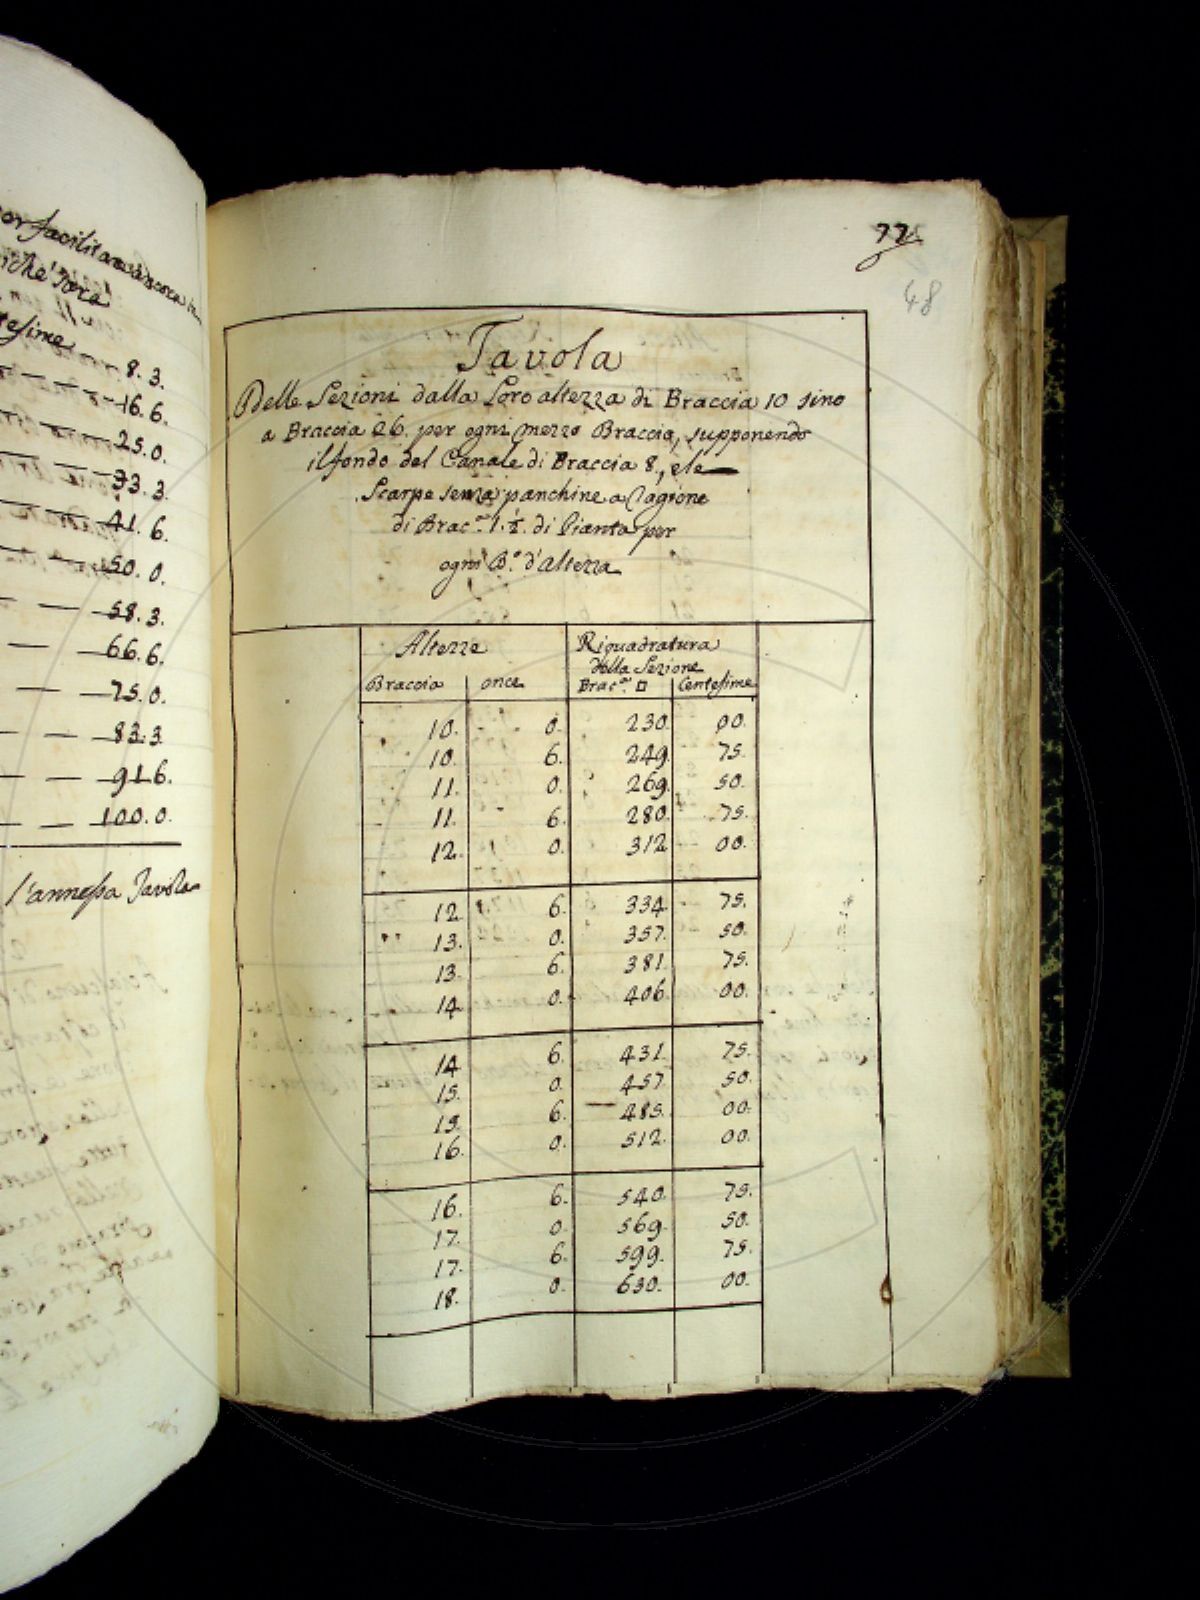 facilitare ancora
8.3.
16.6.
25.0.
33.3.
41.6.
50.0.
58.3.
66.6.
75.0.
83.3.
91.6.
100.0.
l'annessa Tavola
77
48
Tavola
Delle Sezioni dalla Loro altezza di Braccia 10 sino
a Braccia 26. per ogni mezzo Braccia, supponendo
il fondo del Canale di Braccia 8, e le
Scarpe senza panchine a ragione
di Brac.ª 1.½. di Pianta per
ogni B.º d'altezza
Altezze Riquadratura
della Sezione
Braccia once Brac.ª □ Centesime
10. 0. 230. 00.
10. 6. 249. 75.
11. 0. 269. 50.
11. 6. 280. 75.
12. 0. 312 00.
12 6. 334. 75.
13. 0. 357. 50.
13. 6. 381. 75.
14 0. 406 00.
14 6. 431. 75.
15. 0. 457. 50.
15. 6. 485. 00.
16. 0. 512. 00.
16. 6. 540. 75.
17. 0. 569. 50.
17. 6. 599. 75.
18. 0. 630. 00.